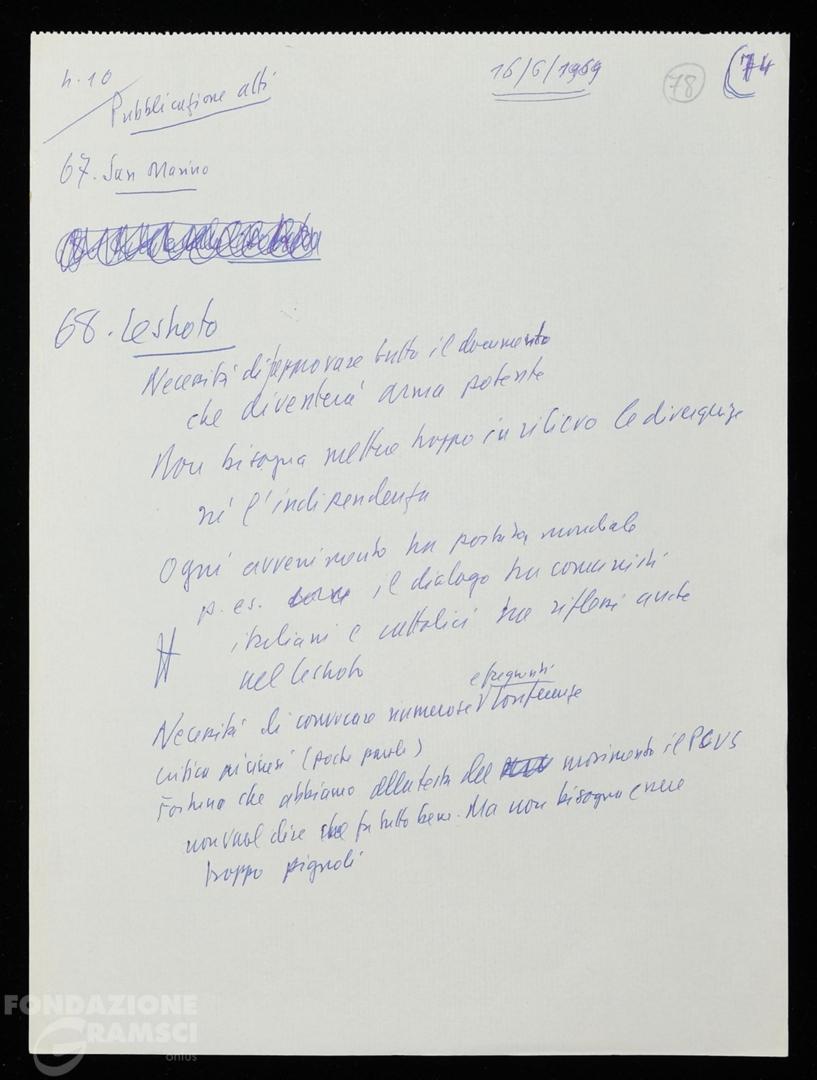 h. 10
16/6/1969
78
74
Pubblicazione atti
67. San Marino
68. Leshoto
Necessità di approvare tutto il documento
che diventerà arma potente
Non bisogna mettere troppo in rilievo le divergenze
né l'indipendenza
Ogni avvenimento ha portata mondiale
p. es. il dialogo tra comunisti
italiani e cattolici ha riflessi anche
nel Leshoto
e frequenti
Necessità di convocare numerose V Conferenze
critica ai cinesi (poche parole)
Fortuna che abbiamo alla testa del movimento il PCUS
non vuol dire che fa tutto bene. Ma non bisogna essere
troppo pignoli
FONDAZIONE
GRAMSCI
onlus